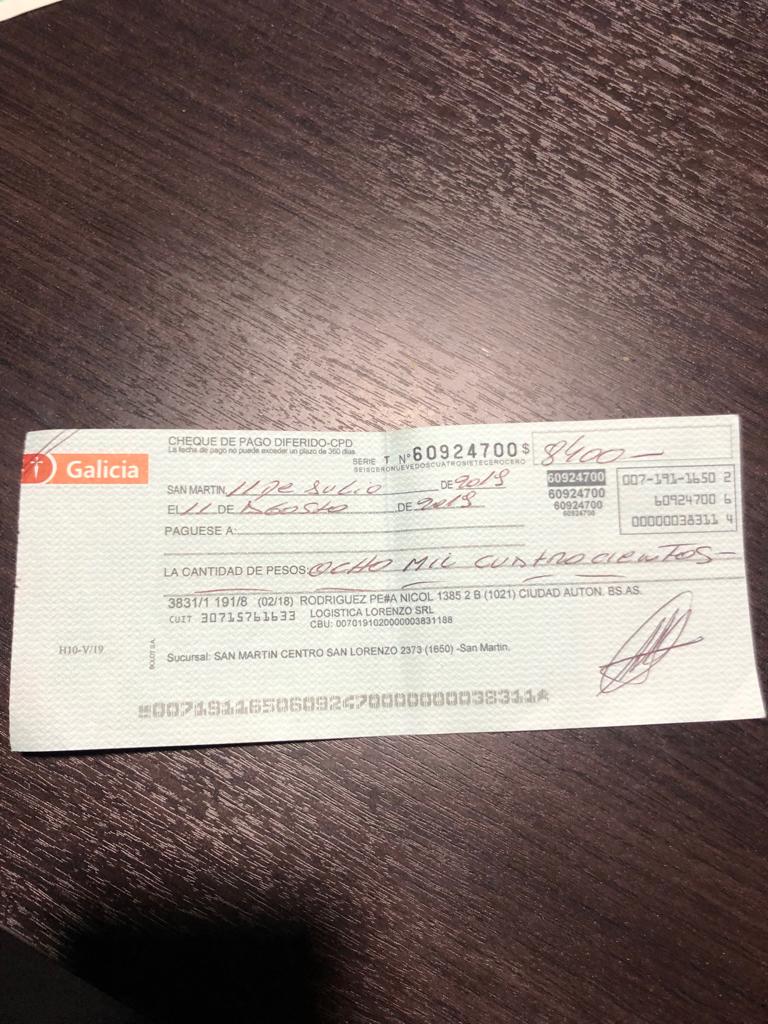 CHEQUE DE PAGO DIFERIDO-CPD
La fecha de pago no puede exceder un plazo de 360 días
SERIE T N° 60924700 $ 8400—
SEISCERONUEVEDOSCUATROSIETECEROCERO
Galicia
SAN MARTIN, 11 DE JULIO DE 2019
60924700
60924700
60924700
60924700
007-191-1650 2
60924700 6
00000038311 4
EL 11 DE AGOSTO DE 2019
PAGUESE A:
LA CANTIDAD DE PESOS: OCHO MIL CUATROCIENTOS—
3831/1 191/8 (02/18) RODRIGUEZ PE#A NICOL 1385 2 B (1021) CIUDAD AUTON. BS.AS.
CUIT 30715761633 LOGISTICA LORENZO SRL
CBU: 0070191020000003831188
H10-V/19
BOLDT S.A.
Sucursal: SAN MARTIN CENTRO SAN LORENZO 2373 (1650) -San Martin.
00719116506092470000000038311